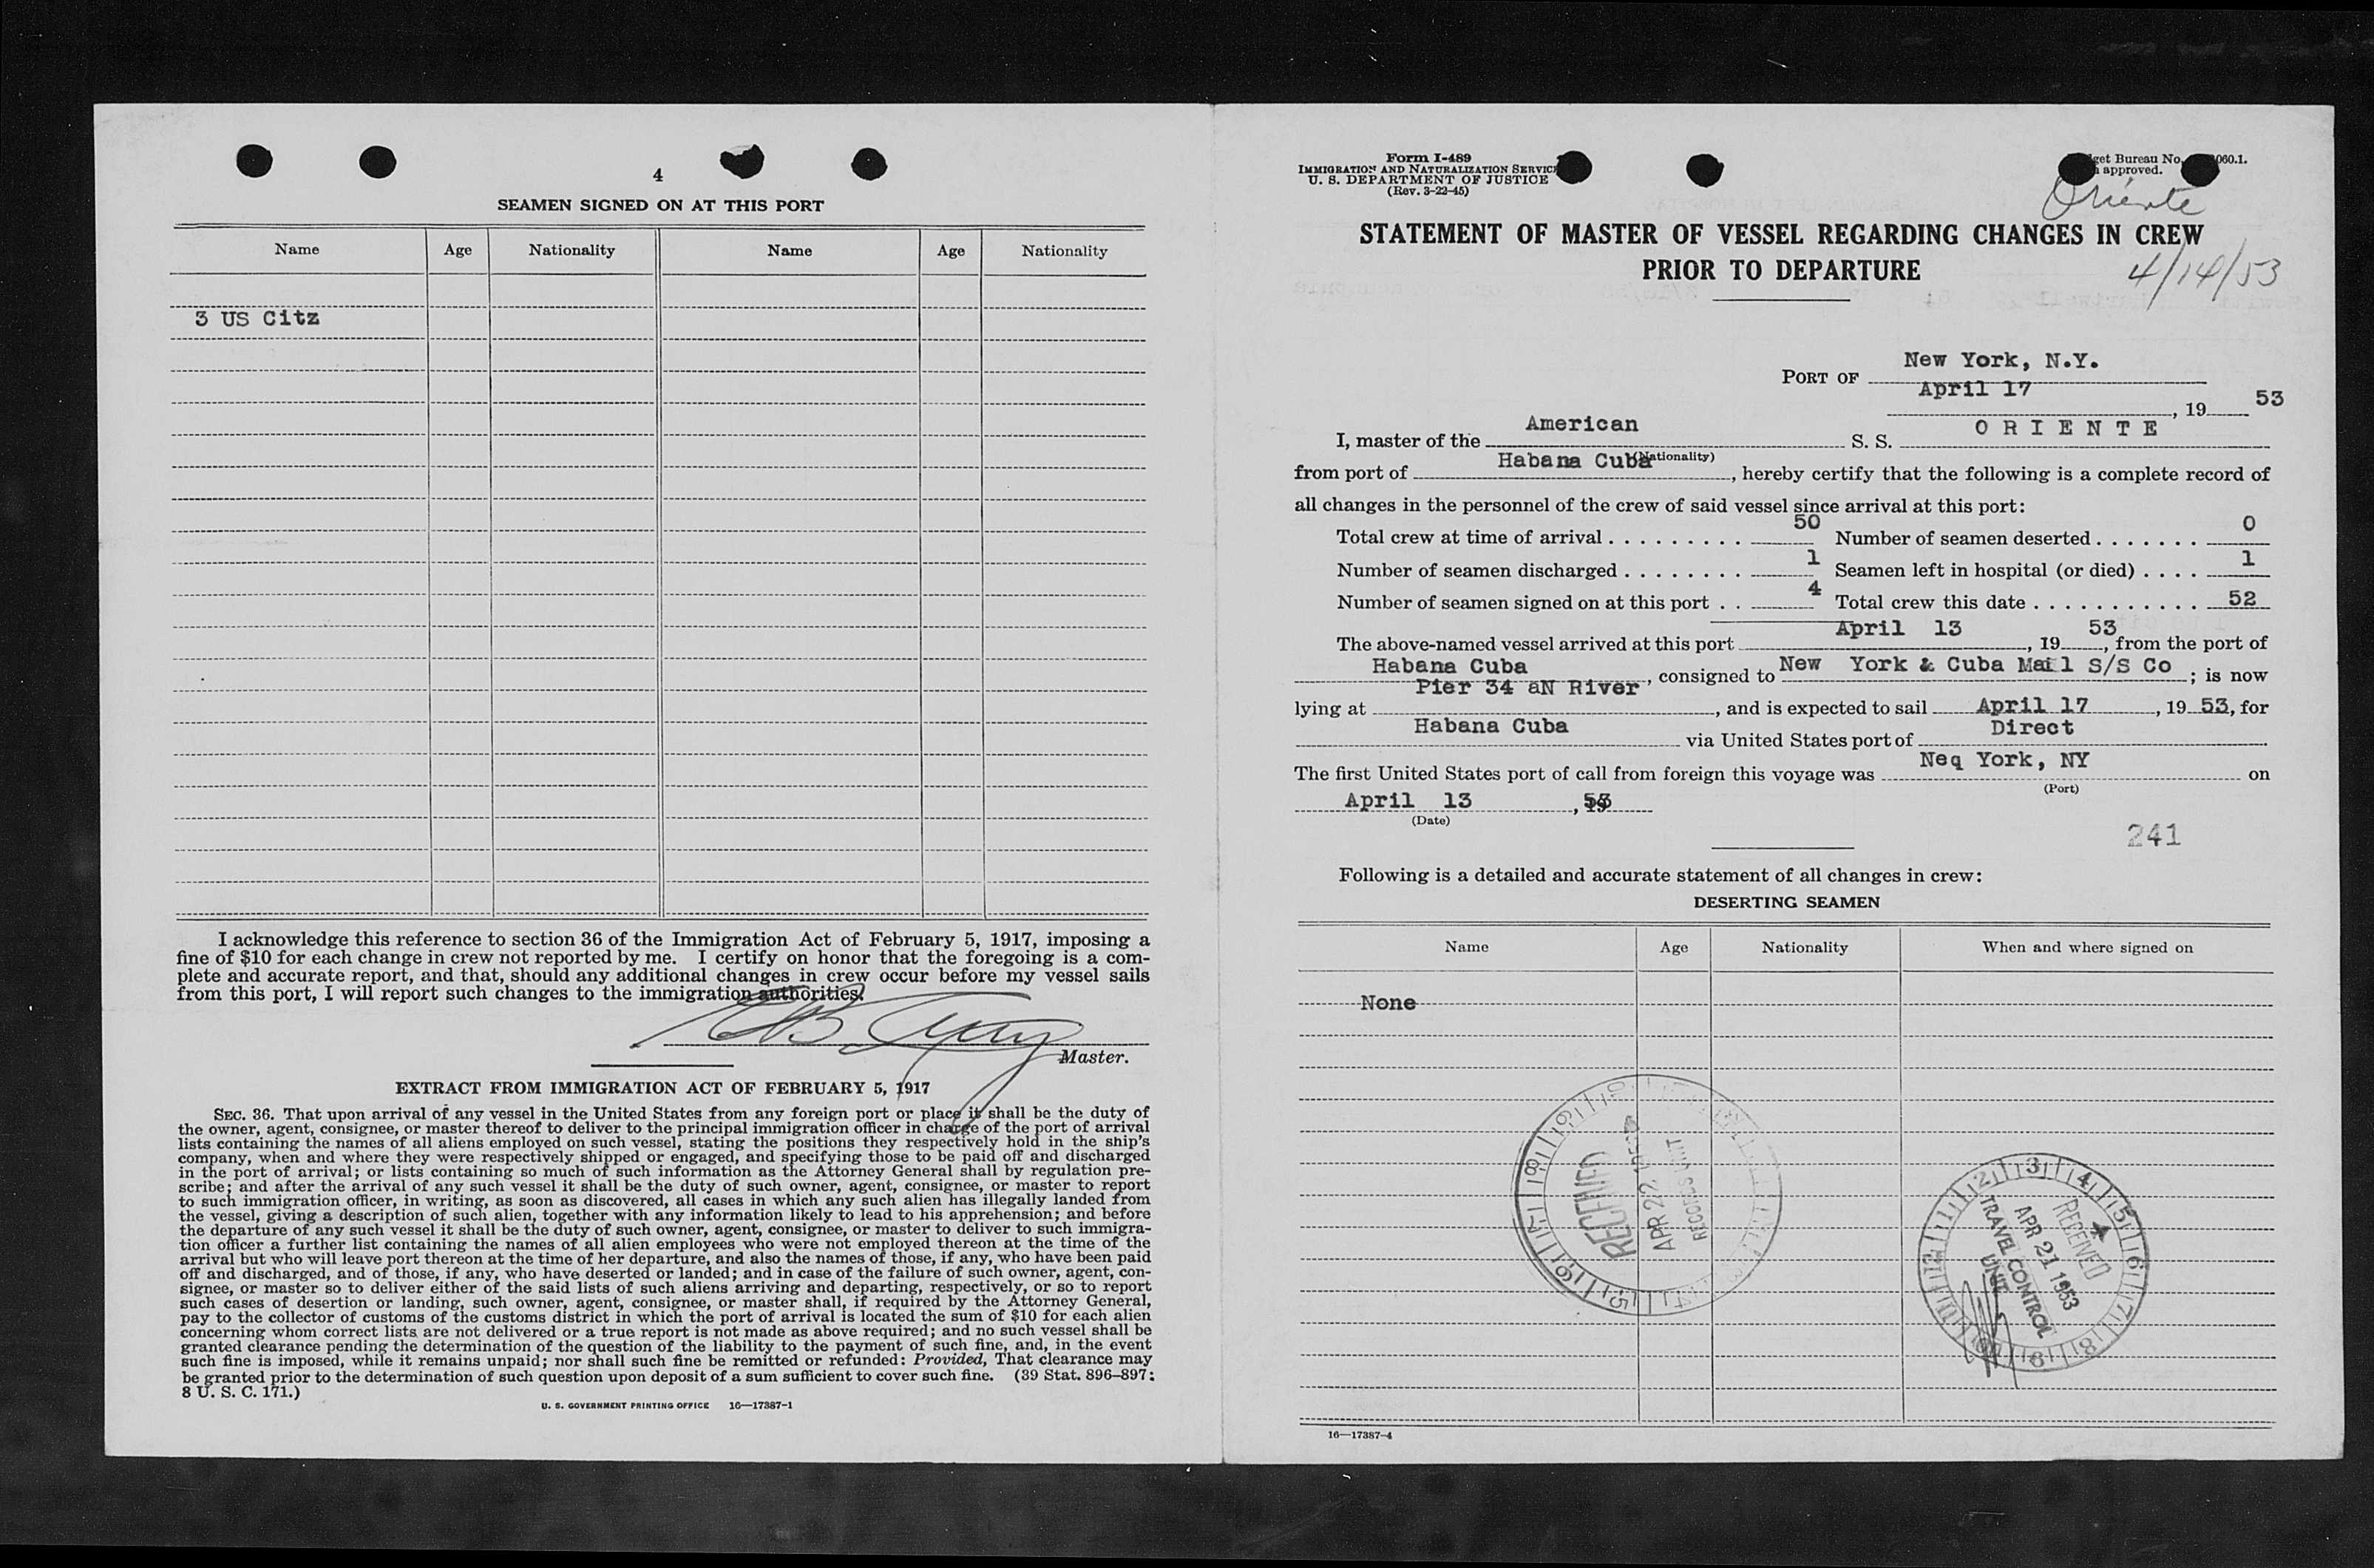 4
SEAMEN SIGNED ON AT THIS PORT
Name Age Nationality Name Age Nationality
3 US Citz
I acknowledge this reference to section 36 of the Immigration Act of February 5, 1917, imposing a
fine of $10 for each change in crew not reported by me. I certify on honor that the foregoing is a com-
plete and accurate report, and that, should any additional changes in crew occur before my vessel sails
from this port, I will report such changes to the immigration authorities.
Master.
EXTRACT FROM IMMIGRATION ACT OF FEBRUARY 5, 1917
SEC. 36. That upon arrival of any vessel in the United States from any foreign port or place it shall be the duty of
the owner, agent, consignee, or master thereof to deliver to the principal immigration officer in charge of the port of arrival
lists containing the names of all aliens employed on such vessel, stating the positions they respectively hold in the ship's
company, when and where they were respectively shipped or engaged, and specifying those to be paid off and discharged
in the port of arrival; or lists containing so much of such information as the Attorney General shall by regulation pre-
scribe; and after the arrival of any such vessel it shall be the duty of such owner, agent, consignee, or master to report
to such immigration officer, in writing, as soon as discovered, all cases in which any such alien has illegally landed from
the vessel, giving a description of such alien, together with any information likely to lead to his apprehension; and before
the departure of any such vessel it shall be the duty of such owner, agent, consignee, or master to deliver to such immigra-
tion officer a further list containing the names of all alien employees who were not employed thereon at the time of the
arrival but who will leave port thereon at the time of her departure, and also the names of those, if any, who have been paid
off and discharged, and of those, if any, who have deserted or landed; and in case of the failure of such owner, agent, con-
signee, or master so to deliver either of the said lists of such aliens arriving and departing, respectively, or so to report
such cases of desertion or landing, such owner, agent, consignee, or master shall, if required by the Attorney General,
pay to the collector of customs of the customs district in which the port of arrival is located the sum of $10 for each alien
concerning whom correct lists are not delivered or a true report is not made as above required; and no such vessel shall be
granted clearance pending the determination of the question of the liability to the payment of such fine, and, in the event
such fine is imposed, while it remains unpaid; nor shall such fine be remitted or refunded: Provided, That clearance may
be granted prior to the determination of such question upon deposit of a sum sufficient to cover such fine. (39 Stat. 896-897;
8 U. S. C. 171.)
U. S. GOVERNMENT PRINTING OFFICE 16—17387-1
Form I-489
IMMIGRATION AND NATURALIZATION SERVICE
U. S. DEPARTMENT OF JUSTICE
(Rev. 3-22-45)
get Bureau No. 060.1.
approved.
Oriente
STATEMENT OF MASTER OF VESSEL REGARDING CHANGES IN CREW
PRIOR TO DEPARTURE
4/14/53
PORT OF New York, N.Y.
April 17, 19 53
I, master of the American S. S. ORIENTE
(Nationality)
from port of Habana Cuba, hereby certify that the following is a complete record of
all changes in the personnel of the crew of said vessel since arrival at this port:
Total crew at time of arrival 50 Number of seamen deserted 0
Number of seamen discharged 1 Seamen left in hospital (or died) 1
Number of seamen signed on at this port 4 Total crew this date 52
The above-named vessel arrived at this port April 13, 19 53, from the port of
Habana Cuba, consigned to New York & Cuba Mail S/S Co; is now
lying at Pier 34 aN River, and is expected to sail April 17, 19 53, for
Habana Cuba via United States port of Direct
The first United States port of call from foreign this voyage was Neq York, NY on
(Port)
April 13, 53
(Date)
241
Following is a detailed and accurate statement of all changes in crew:
DESERTING SEAMEN
Name Age Nationality When and where signed on
None
RECEIVED
APR 22 1953
RECORDS UNIT
RECEIVED
APR 21 1953
TRAVEL CONTROL
UNIT
16—17387-4